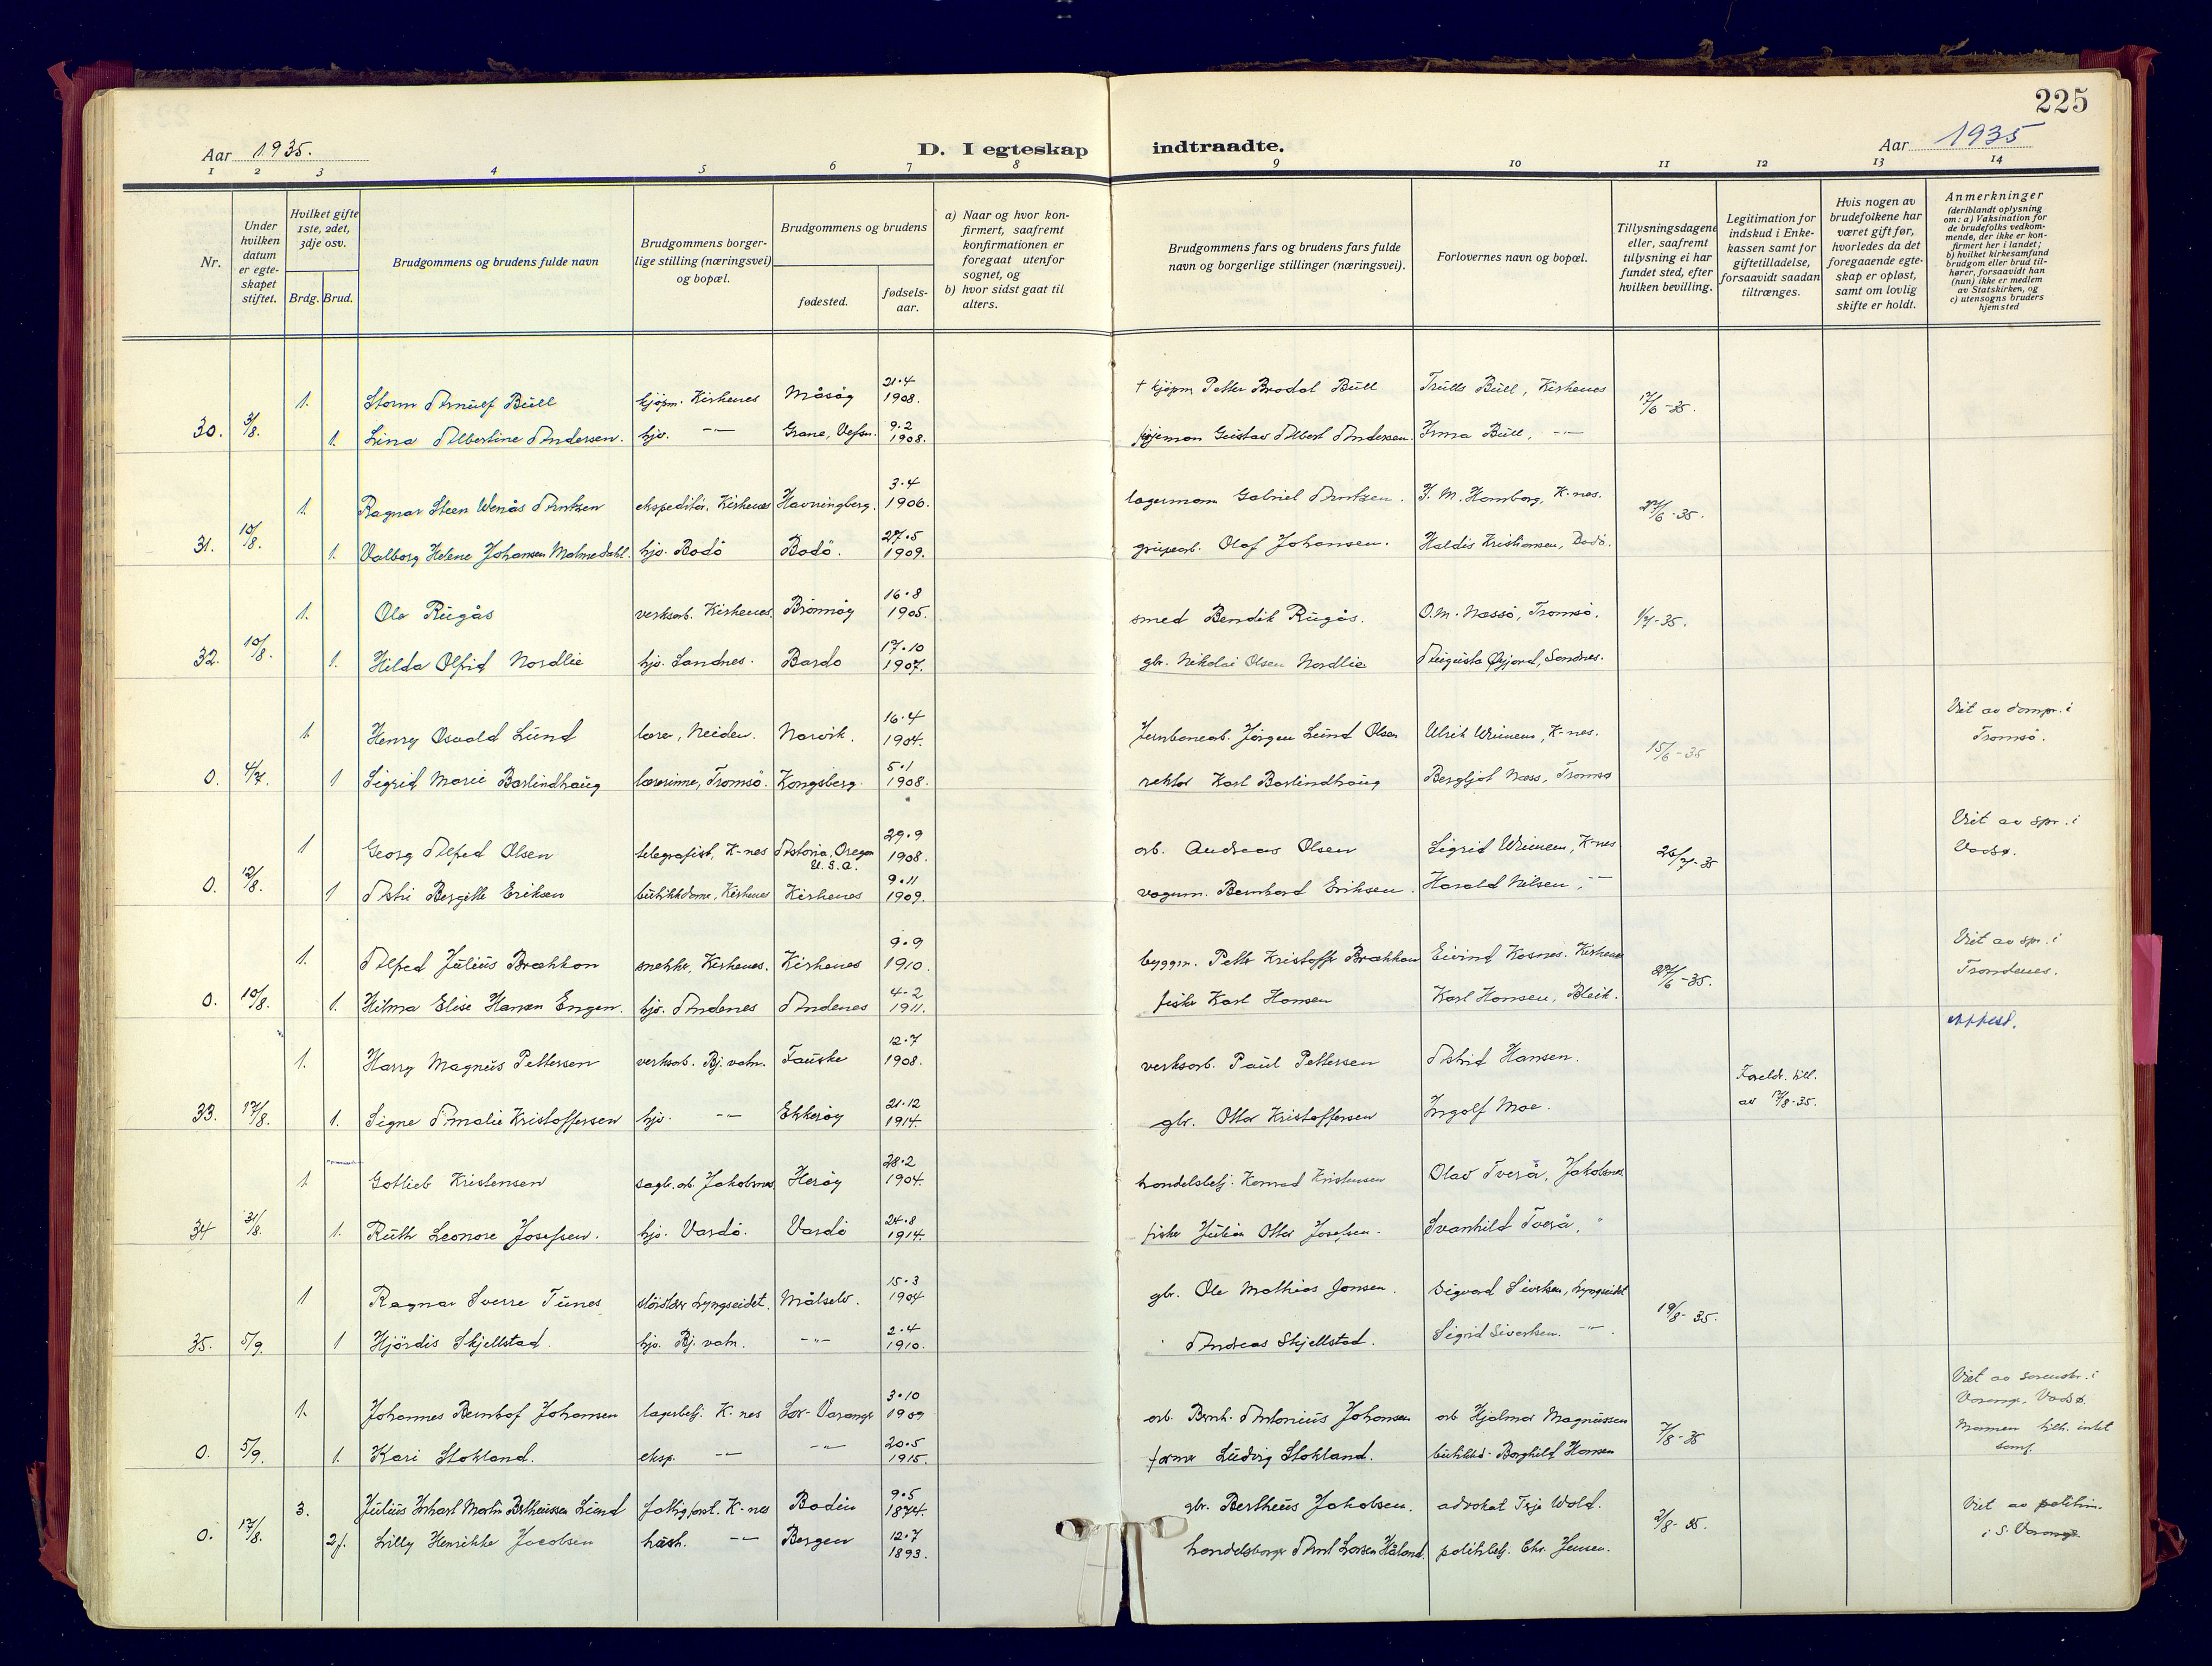 225
Aar 1935.
D. I egteskap indtraadte.
Aar 1935
1 2 3 4 5 6 7 8 9 10 11 12 13 14
Nr.
Under hvilken datum er egteskapet stiftet.
Hvilket gifte 1ste, 2det, 3dje osv.
Brdg. Brud.
Brudgommens og brudens fulde navn
Brudgommens borgerlige stilling (næringsvei) og bopæl.
Brudgommens og brudens
fødested.
fødselsaar.
a) Naar og hvor konfirmert, saafremt konfirmationen er foregaat utenfor sognet, og
b) hvor sidst gaat til alters.
Brudgommens fars og brudens fars fulde navn og borgerlige stillinger (næringsvei).
Forlovernes navn og bopæl.
Tillysningsdagene eller, saafremt tillysning ei har fundet sted, efter hvilken bevilling.
Legitimation for indskud i Enkekassen samt for giftetilladelse, forsaavidt saadan tiltrænges.
Hvis nogen av brudefolkene har været gift før, hvorledes da det foregaaende egteskap er opløst, samt om lovlig skifte er holdt.
Anmerkninger (deriblandt oplysning om: a) Vaksination for de brudefolks vedkommende, der ikke er konfirmert her i landet; b) hvilket kirkesamfund brudgom eller brud tilhører, forsaavidt han (hun) ikke er medlem av Statskirken, og c) utensogns bruders hjemsted
1. Storm Arnulf Büll kjøpm. Kirkenes Måsøy 21.4 1908. † kjøpm. Petter Brodal Büll Trülls Büll, Kirkenes 17/6-35.
30. 3/8. 1. Lina Albertine Andersen. hjv. -"- Grane, Vefsn. 9.2 1908. Gustav Albert Andersen. Irma Büll, -"-
1. Ragnar Steen Wenås Arntzen ekspeditör, Kirkenes Havningberg. 3.4 1906. lagermann Gabriel Arntzen. J. M. Homborg, K-nes. 27/6-35.
31. 10/8. 1. Valborg Helene Johansen Malmedahl. hjv. Bodö Bodö. 27.5 1909. grüvearb. Olaf Johansen. Haldis Kristiansen, Bodö.
1. Ole Rügås verksarb. Kirkenes. Brönnöy 16.8 1905. smed Bendik Rügås. O.M. Næssö, Tromsö. 1/7-35.
32. 10/8. 1. Hilda Olfrid Nordlie hjv. Sandnes. Bardo 17.10 1907. gbr. Nikolai Olsen Nordlie Augusta Øyjord, Sandnes.
1. Henry Osvald Lünd lærer, Neiden. Narvik. 16.4 1904. Jernbanearb. Jörgen Lünd Olsen Ulrik Wiinem, K-nes. 15/6-35 Viet av dompr. i Tromsö.
0. 4/7. 1 Sigrid Marie Barlindhaüg lærerinne, Tromsö. Kongsberg. 5.1 1908. rektor Karl Barlindhaüg Bergljot Næss, Tromsö
1 Georg Alfred Olsen telegrafist, K-nes Astoria, Oregon U.S.A. 29.9 1908. arb. Andreas Olsen Sigrid Wiinem, K-nes 26/7-35 Viet av spr. i Vadsø.
0. 12/8. 1 Astri Bergitte Eriksen bütikkdame, Kirkenes Kirkenes 9.11 1909. vognm. Bernhard Eriksen. Harald Nilsen, -"-
1. Alfred Jülius Brækkan snekker, Kirkenes. Kirkenes 9.9 1910. byggm. Petter Kristoffer Brækkan Eivind Kosnes. Kirkenes 27/6-35. Viet av spr. i Trondenes.
0. 10/8. 1. Hilma Elise Hansen Engen. hjv. Andenes Andenes 4.2 1911. fisker Karl Hansen Karl Hansen, Bleik.
1. Harry Magnüs Pettersen verksarb. Bj.vatn. Faüske 12.7 1908. verksarb. Paul Pettersen Astrid Hansen. Foreldr. till. av 17/8-35.
33. 17/8. 1. Signe Amalie Kristoffersen hjv. -"- Ekkeröy 21.12 1914. gbr. Ottar Kristoffersen Ingolf Moe.
1. Gotlieb Kristensen sagbr.arb. Jakobsnes Heröy 28.2 1904. handelsbetj. Konrad Kristensen Olav Tverå, Jakobsnes
34 31/8. 1. Rüth Leonore Josefsen. hjv. Vardö. Vardö 24.8 1914. fisker Jülian Ottar Josefsen. Svanhild Tverå, "
1 Ragnar Sverre Tünes Lyngseidet. Målselv. 15.3 1904 gbr. Ole Mathias Jonsen. Sigvard Sivertsen, Lyngseidet 19/8-35.
35. 5/9. 1 Hjördis Skjellstad. hjv. Bj.vatn. -"- 2.4 1910. Andreas Skjellstad. Sigrid Sivertsen. -"-
1. Johannes Bernhof Johansen lagerbetj. K-nes Sør-Varanger 3.10 1909 arb. Bernh. Antonius Johansen arb Hjalmar Magnüssen 7/8-35 Viet av sorenskr. i Varang. Vadsø.
0. 5/9. 1. Kari Stokland. eksp. -"- -"- 20.5 1915. former Lüdvig Stokland. bütikkd. Borghild Hansen Mannen tilh. intet samf.
3. Jülius Ikhart Martin Bertheüssen Lünd fattigforst. K-nes Bodin 9.5 1874. gbr. Bertheüs Jakobsen. advokat Terje Wold. 2/8-35. Viet av politim. i S. Varanger
0. 17/8. 2f. Lilly Henrikke Jacobsen hüsh. -"- Bergen 12.7 1893. handelsborger Arnt Larsen Håland. politibetj. Chr. Jensen.